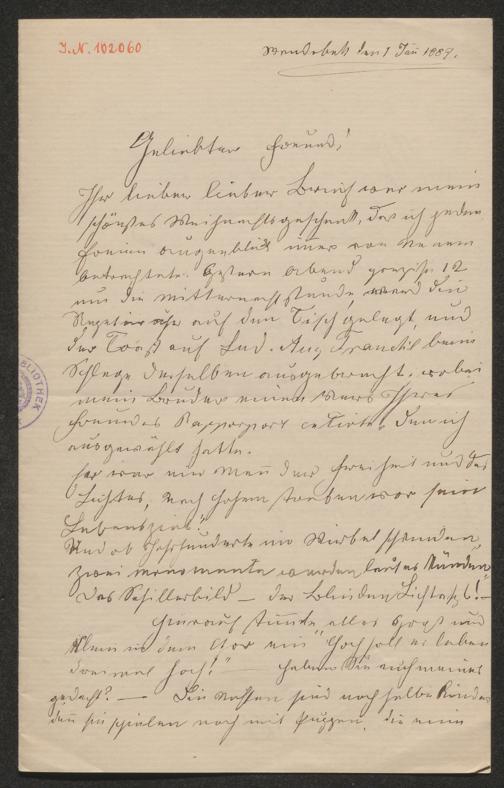 I.N. 102060
den 1 Jän 1889.
Geliebter Freund!
Ihr lieber lieber Brief war mein
schönstes Weihnachtsgeschenk, das ich jeden
freien Augenblick immer von Neuem
betrachtete. Gestern Abend präzise 12
um die Mitternachtsstunde, ward die
Repetiruhr auf den Tisch gelegt, und
der Toast auf Lud. Aug. Frankl beim
Schlage derselben ausgebracht, wobei
mein Bruder einen Vers Ihres
Freundes Rappaport citirte, den ich
ausgewählt hatte.
Er war ein Mann der Freiheit und des
Lichtes, nach hohem Streben war sein
Lebensziel!
Und ob Jahrhunderte im Wirbel schwanden,
zwei Monumente werden lautes künden
Das Schillerbild — der Blinden Licht
Hierauf stimmte alles Groß und
Klein in dem Chor ein "Hoch soll er leben
dreimal hoch!" Haben Sie auch meiner
gedacht? — Die sind noch halbe Kinder
denn sie spielen noch mit Puppen, die
BLIOTHEK